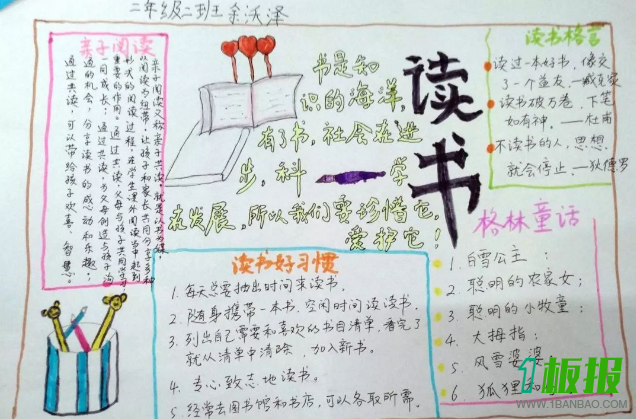 二年级二班 余沃泽
亲子阅读
亲子阅读又称亲子共读，就是以书为媒，
以阅读为纽带，让孩子和家长共同分享多种
形式的阅读过程。在学生课外阅读当中起到
重要的作用。通过共读，父母与孩子共同学习，
一同成长；通过共读，为父母创造与孩子沟
通的机会，分享读书的感动和乐趣；
通过共读，可以带给孩子欢喜、智慧。
书是知
识的海洋，
有了书，社会在进
步，科学
在发展，所以我们要珍惜它，
爱护它！
读书
读书格言
读过一本好书，像交
了一个益友。—臧克家
读书破万卷，下笔
如有神。—杜甫
不读书的人，思想
就会停止。—狄德罗
读书好习惯
1. 每天总要抽出时间来读书。
2. 随身携带一本书，空闲时间读读书。
3. 列出自己需要和喜欢的书目清单，看完了
就从清单中清除，加入新书。
4. 专心致志地读书。
5. 经常去图书馆和书店，可以各取所需。
格林童话
1. 白雪公主；
2. 聪明的农家女；
3. 聪明的小牧童；
4. 大拇指；
5. 风雪婆婆
6. 狐狸和
1板报
WWW.1BANBAO.COM